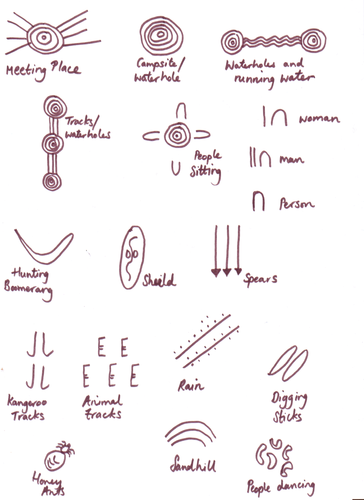 Meeting Place
Campsite/
Waterhole
Waterholes and
running water
Tracks/
waterholes
People
Sitting
woman
man
Person
Hunting
Boomerang
Sheild
Spears
Kangaroo
Tracks
Animal
tracks
Rain
Digging
Sticks
Honey
Ants
Sandhill
People dancing